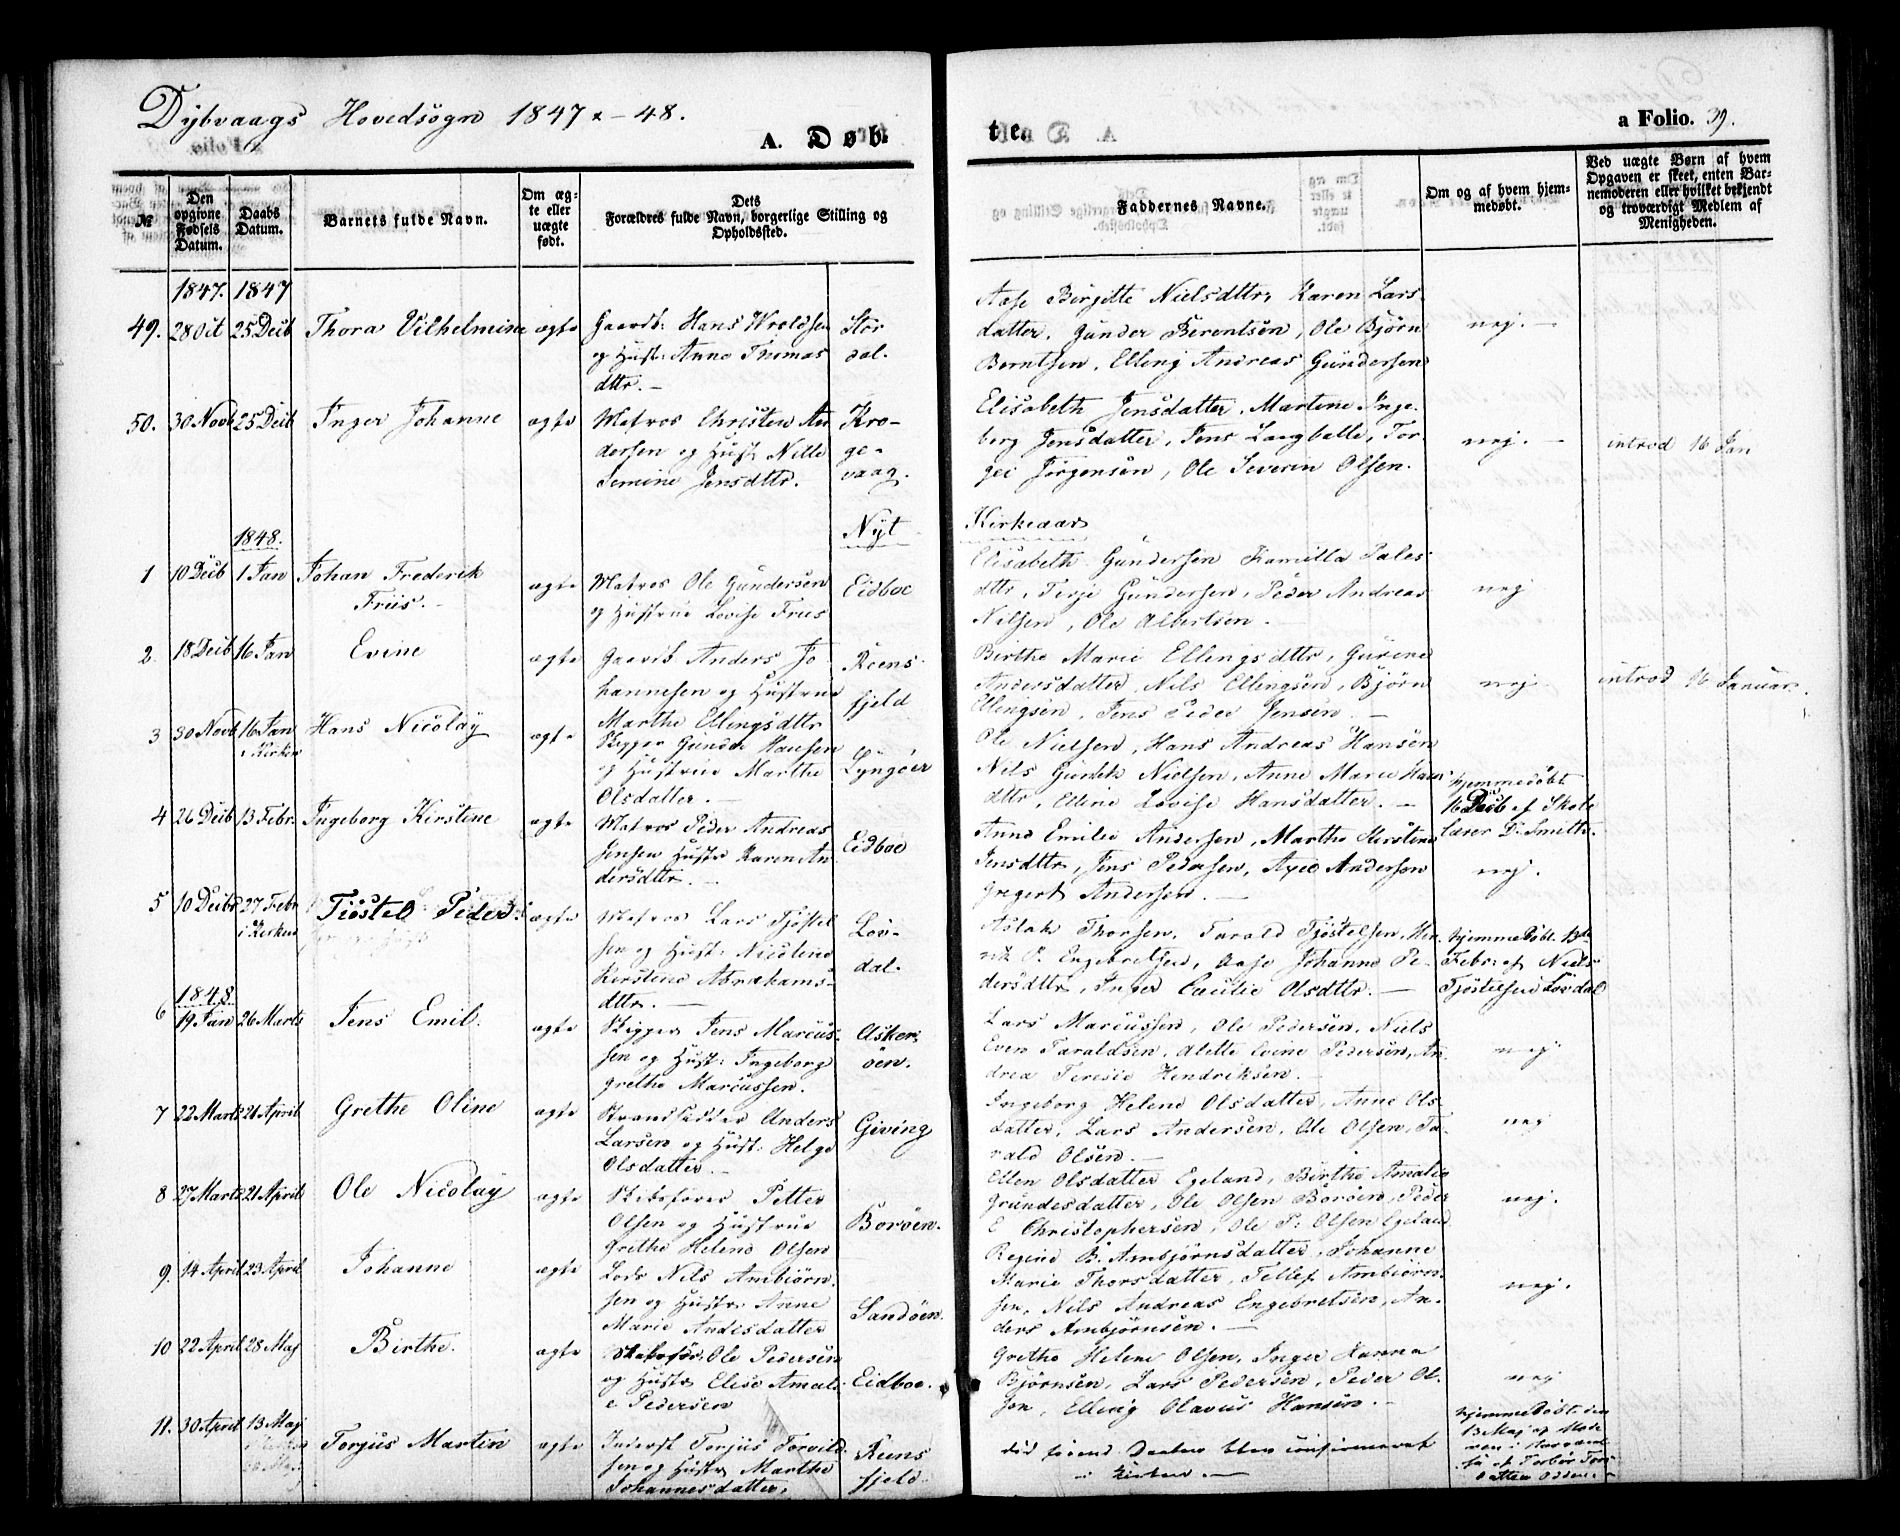 Dybvaags Hovedsogn 1847 - 48.
A. Døb
te.
a Folio. 39.
№
Den opgivne Fødsels Datum.
Daabs Datum.
Barnets fulde Navn.
Om ægte eller uægte født.
Dets Forældres fulde Navn, borgerlige Stilling og Opholdssted.
Faddernes Navne.
Om og af hvem hjemmedøbt.
Ved uægte Børn af hvem Opgaven er skeet, enten Barnemoderen eller hvilket bekjendt og troværdigt Medlem af Menigheden.
1847. 1847
49. 28 Oct 25 Decb Thora Vilhelmine ægte Gaardb: Hans Wroldsen Stor
og Hust: Anne Thomas dal.
dttr. —
Aase Birgitte Nielsdttr, Karen Lars
datter, Gunder Berentsen, Ole Bjørn nej. —
Berntsen, Elling Andreas Gundersen
50. 30 Novb 25 Decb Inger Johanne ægte Matros Christen An Kro-
dersen og Hust: Nille ge-
Semine Jensdttr. vaag.
Elisabeth Jensdatter, Martine Inge
berg Jensdatter, Jens Langballe, Tor- nej. — introd 16 Jan
gei Jørgensen, Ole Severin Olsen.
1848. Nyt Kirkeaar
1 10 Decb 1 Jan Johan Frederik ægte Matros Ole Gundersen Eidboe
Friis. — og Hustrue Lovise Friis
Elisabeth Gundersen Kamilla Pales
dttr, Terje Gundersen, Peder Andreas nej
Nilsen, Ole Albertsen. —
2. 18 Decb 16 Jan Evine ægte Gaardb Anders Jo Reens
hannesen og Hustrue fjeld
Marthe Ellingsdttr
Birthe Marie Ellingsdttr, Gurine
Andersdatter, Nils Ellingsen, Bjørn nej. introd 16 Januar.
Ellingsen, Jens Peder Jensen. —
3 30 Novb 16 Jan Hans Nicolay ægte Skipper Gunder Hansen
i Kirken og Hustrue Marthe Lyngöer
Olsdatter. —
Ole Nielsen, Hans Andreas Hansen
Nils Nielsen, Anne Marie Hans
dttr, Elline Lovise Hansdatter. — hjemmedøbt
16 Decb af Skole
lærer D. Smith.
4 26 Decb 13 Febr. Ingeborg Kirstine ægte Matros Peder Andreas
Jensen Hustr Karen An Eidboe
dersdttr. —
Anne Emilie Andersen, Marthe Kirstine
Jensdttr, Jens Pedersen, Axel Andersen nej.
Gregert Andersen. —
5 10 Decbr 27 Febr Tjöstel Peder ægte Matros Lars Tjöstel Löv-
i Kirken sen og Hust: Nicoline dal.
Kirstine Abrahams-
dttr. —
Aslak Thorsen, Tarald Tjöstelsen, Hen-
rik P. Engebretsen, Aase Johanne Pe-
dersdttr, Inger Cæcilie Olsdttr. — hjemmedöbt 13de
Febr: af Niels
Tjöstelsen Lövdal
1848.
6 19 Jan 26 Marts Jens Emil. ægte Skipper Jens Marcus- Asker
sen og Hust: Ingeborg öen.
Grethe Marcussen.
Lars Marcussen, Ole Pedersen, Niels
Even Taraldsen, Alette Evine Pedersen, An nej
drea Teresie Hendriksen. —
7 22 Marts 21 April Grethe Oline ægte Strandsidder Anders
Larsen og Hust: Helge Giving
Olsdatter. —
Ingeborg Helene Olsdatter, Anne Ols-
datter, Lars Andersen, Ole Olsen, Ta- nej
rald Olsen. —
8 27 Marts 21 April Ole Nicolay ægte Skibsfører Petter
Olsen og Hustrue Boröen.
Grethe Helene Olsen
Ellen Olsdatter Egeland, Birthe Amalie
Grundesdatter, Ole Olsen Boröen, Peder nej.
E Christophersen, Ole P: Olsen Egeland
9. 14 April 23 April Johanne ægte Lods Nils Ambiörn-
sen og Hustr: Anne Sandöen.
Marie Andesdatter
Regine B. Ambjörnsdatter, Johanne
Marie Thorsdatter, Tellef Ambiörn
sen, Nils Andreas Engebretsen, An- nej.
ders Ambjörnsen. —
10 22 April 28 Maj Birthe. ægte Skibsför. Ole Pedersen
og Hustr Elise Amali- Eidboe.
e Pedersen
Grethe Helene Olsen, Inger Hanna
Björnsen, Lars Pedersen, Peder Ol- nej
sen, Elling Olavus Hansen. —
11. 30 April 13 Maj Torjus Martin ægte Inderst Torjus Torvild- Reens
sen og Hustr Marthe fjeld.
Johannesdatter,
did Daaben blev confirmeret
i Kirken. — hjemmedöbt den
13 Maj af